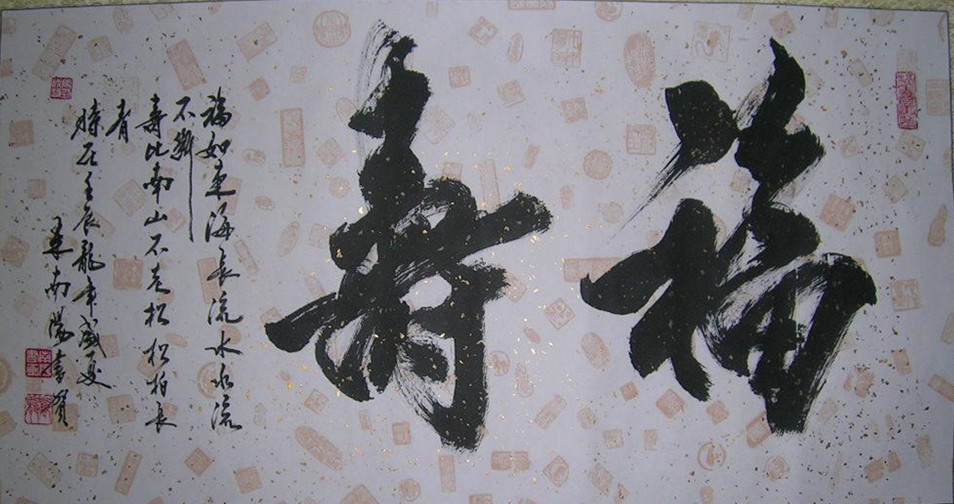 福寿
福如东海长流水水流
不断
寿比南山不老松松柏长
青
时在壬辰龙年盛夏
南阳